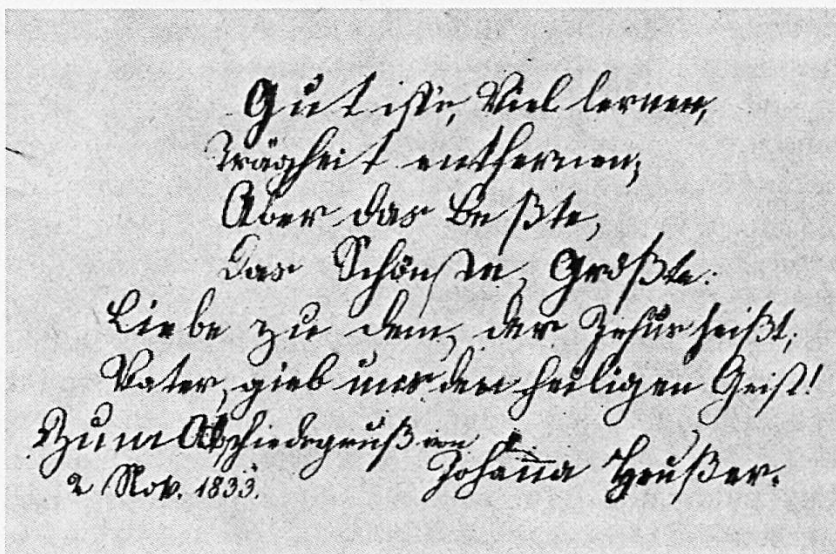 Gut ists, Viel lernen,
Trägheit entfernen;
Aber das Beßte,
Das Schönste, Größte:
Liebe zu dem, der Jesus heißt;
Vater, gieb uns den heiligen Geist!
Zum Abschiedsgruß von
2 Nov. 1833. Johanna Heußer.